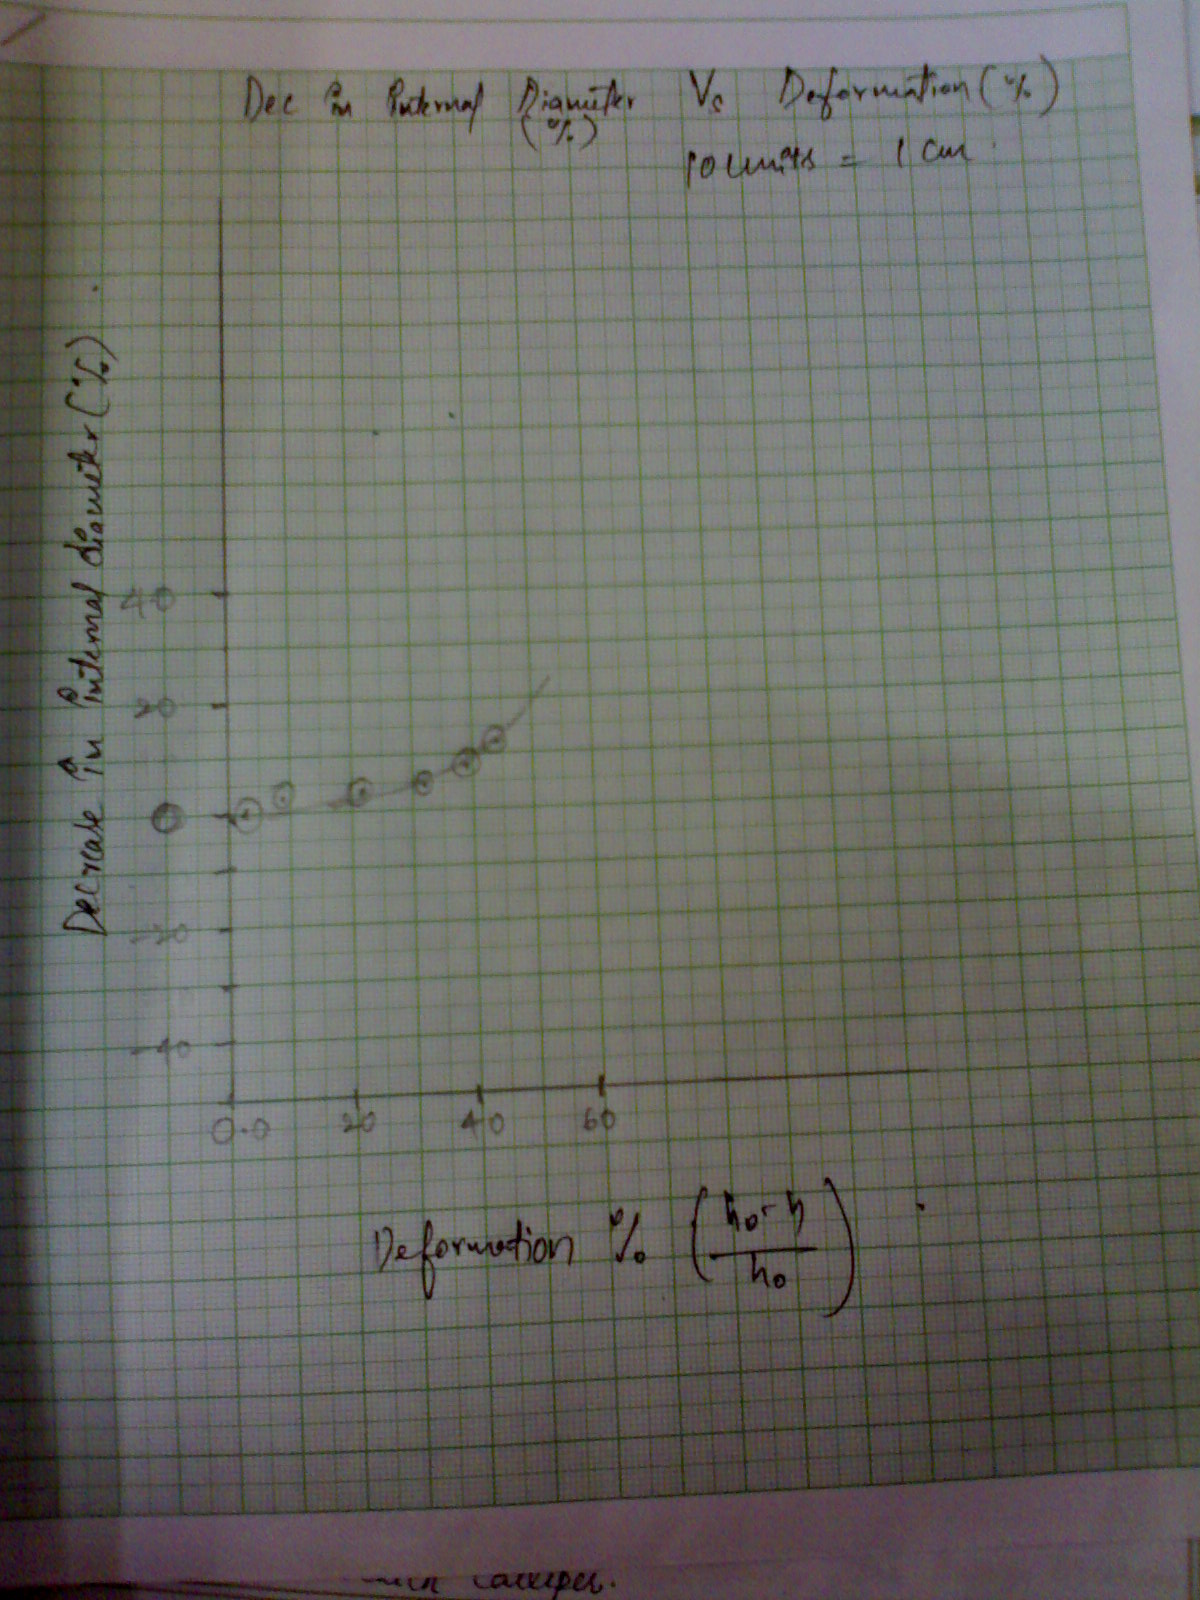 Dec in internal Diameter Vs Deformation (%)
(%)
10 units = 1 cm
Decrease in internal diameter (%)
40
20
0
-20
-40
0.0 20 40 60
Deformation % (h₀-h / h₀)